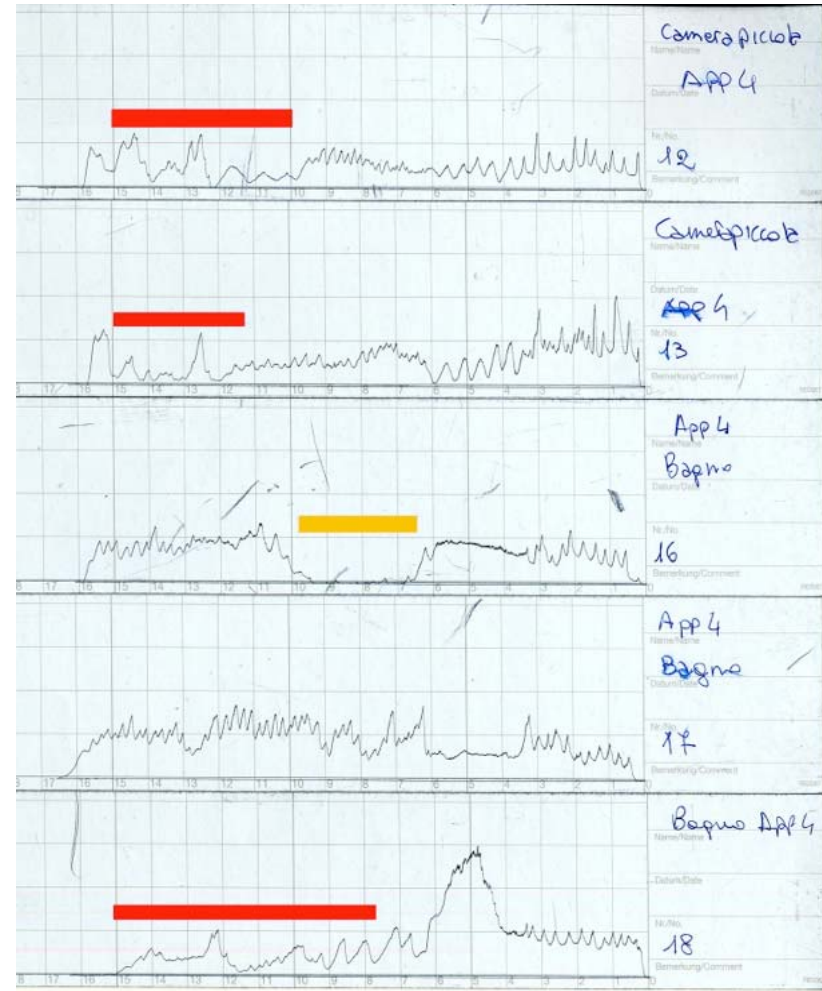 Camera piccola
Name/Name
APP 4
Datum/Date
Nr./No.
12
Bemerkung/Comment
17 16 15 14 13 12 11 10 9 8 7 6 5 4 3 2 1 0
Camera piccola
Name/Name
Datum/Date
App 4
Nr./No.
13
Bemerkung/Comment
17 16 15 14 13 12 11 10 9 8 7 6 5 4 3 2 1 0
App 4
Name/Name
Bagno
Datum/Date
Nr./No.
16
Bemerkung/Comment
17 16 15 14 13 12 11 10 9 8 7 6 5 4 3 2 1 0
App 4
Name/Name
Bagno
Datum/Date
Nr./No.
17
Bemerkung/Comment
17 16 15 14 13 12 11 10 9 8 7 6 5 4 3 2 1 0
Bagno App 4
Name/Name
Datum/Date
Nr./No.
18
Bemerkung/Comment
17 16 15 14 13 12 11 10 9 8 7 6 5 4 3 2 1 0